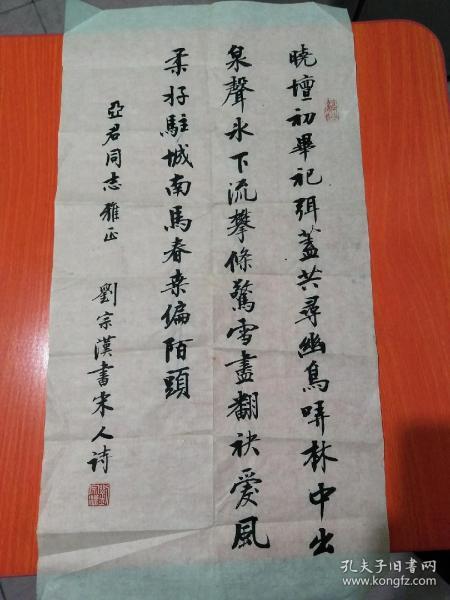 晓壇初畢祀弭蓋共尋幽鳥哢林中出
泉聲氷下流攀條驚雪盡翻袂愛風
柔好駐城南馬春桑偏陌頭
亞君同志雅正
劉宗漢書宋人诗
孔夫子旧书网
www.kongfz.com